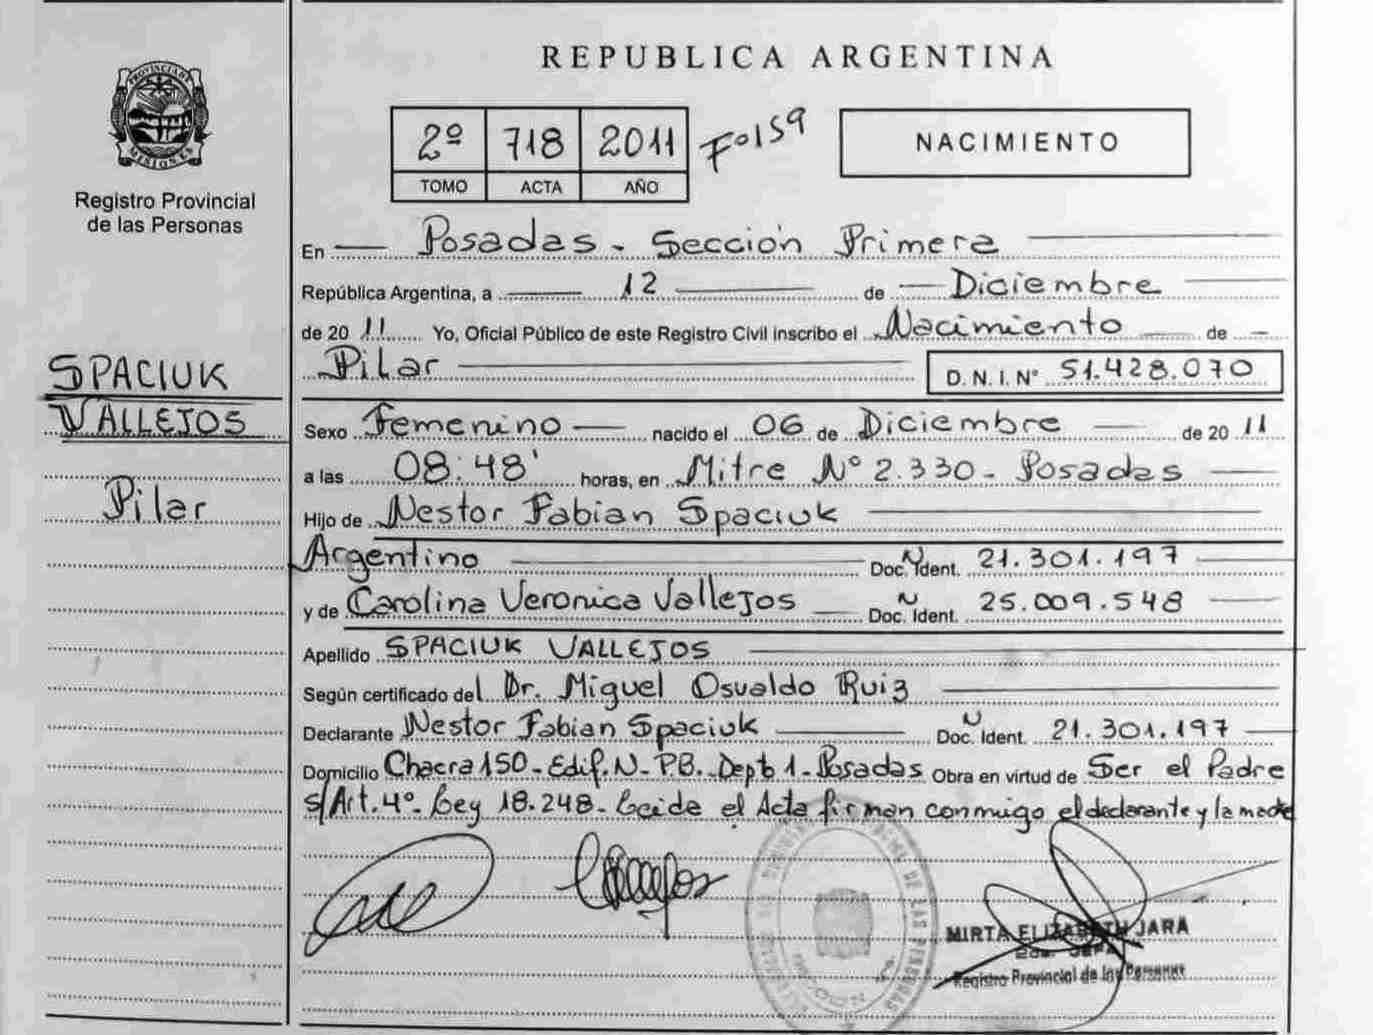 PROVINCIA DE
MISIONES
Registro Provincial
de las Personas
SPACIUK
VALLEJOS
Pilar
REPUBLICA ARGENTINA
2º 718 2011 Fº159
TOMO ACTA AÑO
NACIMIENTO
En Posadas - Sección Primera
República Argentina, a 12 de Diciembre
de 2011 Yo, Oficial Público de este Registro Civil inscribo el Nacimiento de
Pilar D. N. I. Nº 51.428.070
Sexo Femenino nacido el 06 de Diciembre de 2011
a las 08:48' horas, en Mitre Nº 2.330 - Posadas
Hijo de Nestor Fabian Spaciuk
Argentino Doc. N Ident. 21.301.197
y de Carolina Veronica Vallejos Doc. N Ident. 25.009.548
Apellido SPACIUK VALLEJOS
Según certificado del Dr. Miguel Osvaldo Ruiz
Declarante Nestor Fabian Spaciuk Doc. N Ident. 21.301.197
Domicilio Chacra 150 - Edif. N - P.B. - Depto 1 - Posadas Obra en virtud de Ser el Padre
s/Art. 4º - Ley 18.248 - Leida el Acta firman conmigo el declarante y la madre
MIRTA ELIZABETH JARA
Registro Provincial de las Personas